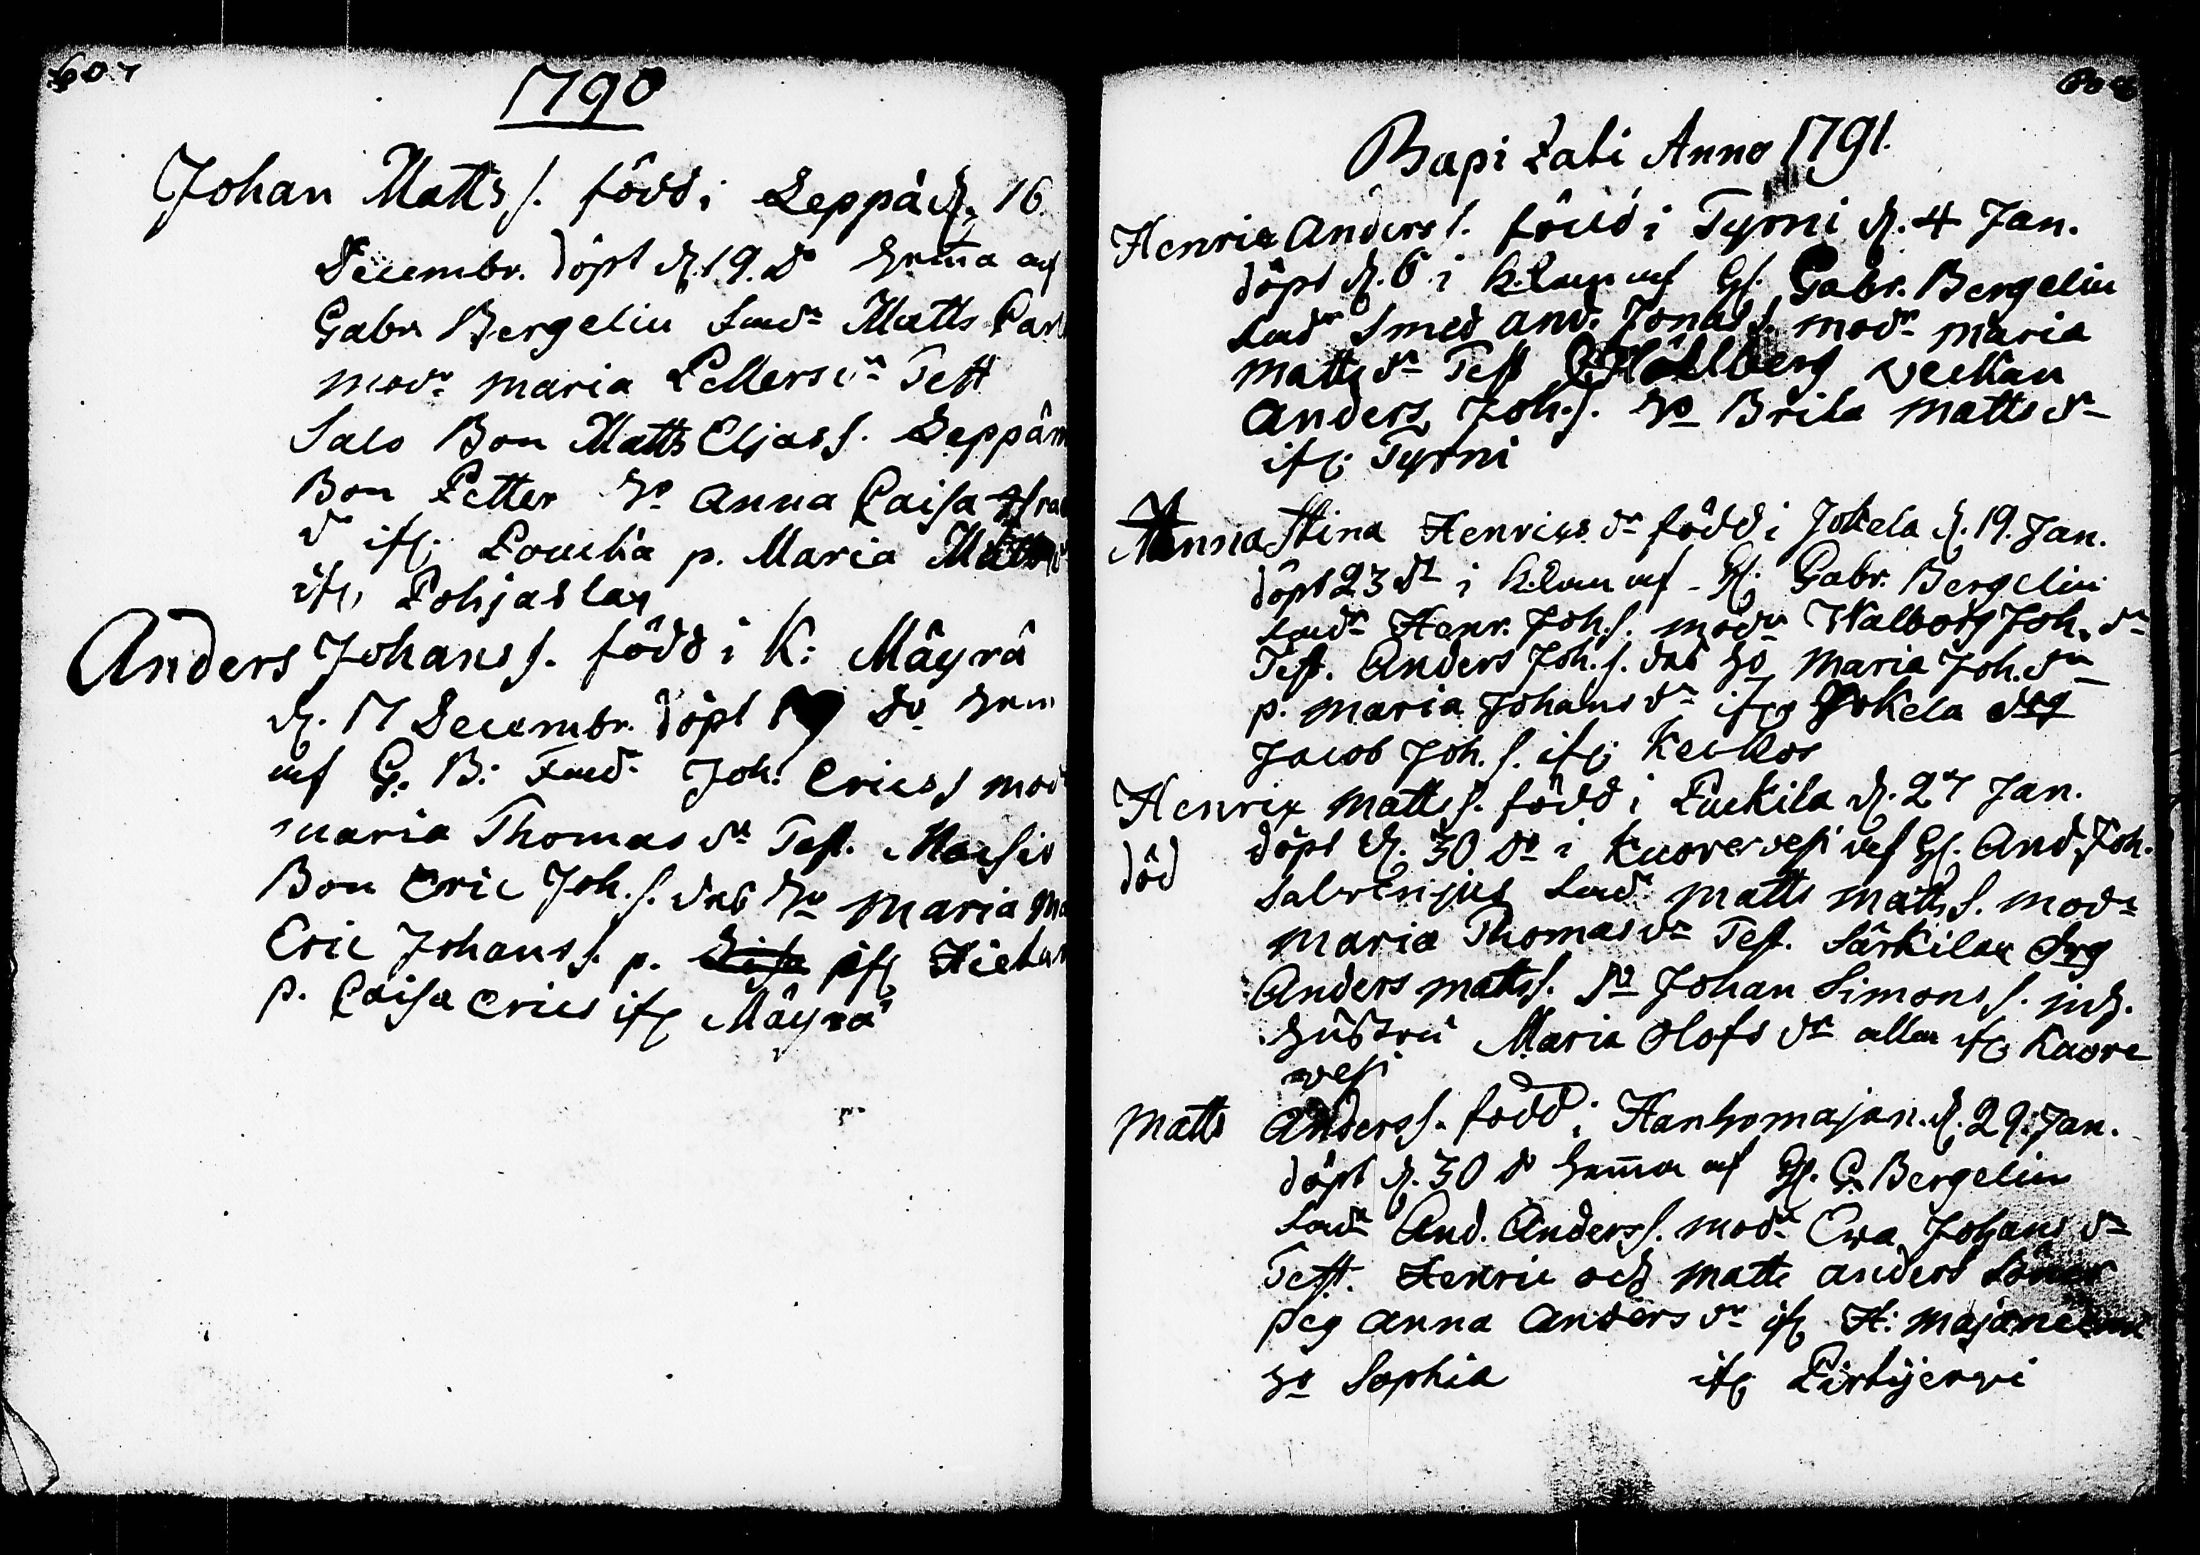 607
1790
Johan Matts s. född i Leppä d. 16
Decembr. döpt d. 19. do hema af
Gabr. Bergelin Fadr Matts
modr Maria Pettersdr Test
Salo Bon Matts Eliass. Seppän
Bon Petter ho Anna Caisa
dr ifr. Loucka p. Maria
ifr. Pohjaslax
Anders Johanss. född i K: Mäyrä
d. 17 Decembr. döpt 19 do hem
af G: B: Fadr Joh. Erics s mod
maria Thomasdr Test. Moisio
Bon Eric Joh. s. dess ho Maria Ma
Eric Johanss. p. ifr
p. Caisa Erics ifr Mäyrä
608
Bapizati Anno 1791.
Henric Anders s. född i Tyrni d. 4 Jan.
döpt d. 6 i k:kan af Hr. Gabr. Bergelin
Fadr Smed And. Jonas s. modr Maria
Matts dr Test Hällberg Veckan
Anders Joh. s. ho Brita Matts dr
ifr. Tyrni
Anna Stina Henrics dr född i Jokela d. 19. Jan.
döpt 23 do i k:kan af Hr. Gabr. Bergelin
Fadr Henr. Joh. s. modr Walborg Joh. dr
Test. Anders Joh. s. dess ho Maria Joh. dr
p. Maria Johans dr ifr Jokela drg
Jacob Joh. s. ifr. Keckos
Henric Matts s. född i Puckila d. 27 Jan.
död döpt d. 30 do i Kuorevesi af Hr. And. Joh.
Salvenius Fadr Matts Matts s. modr
Maria Thomasdr Test. Särkilax drg
Anders Matts s. do Johan Simons s. inh.
hustru Maria Olofs dr alla ifr. Kuore
vesi
Matts Anders s. född i Hanhomajan. d. 29. Jan.
döpt d. 30 do hema af Hr. G. Bergelin
Fadr And. Anders s. modr Ewa Johans dr
Test. Henric och Matts Anders Söner
pig Anna Anders dr ifr H: majaniemi
ho Sophia ifr Pirtijervi